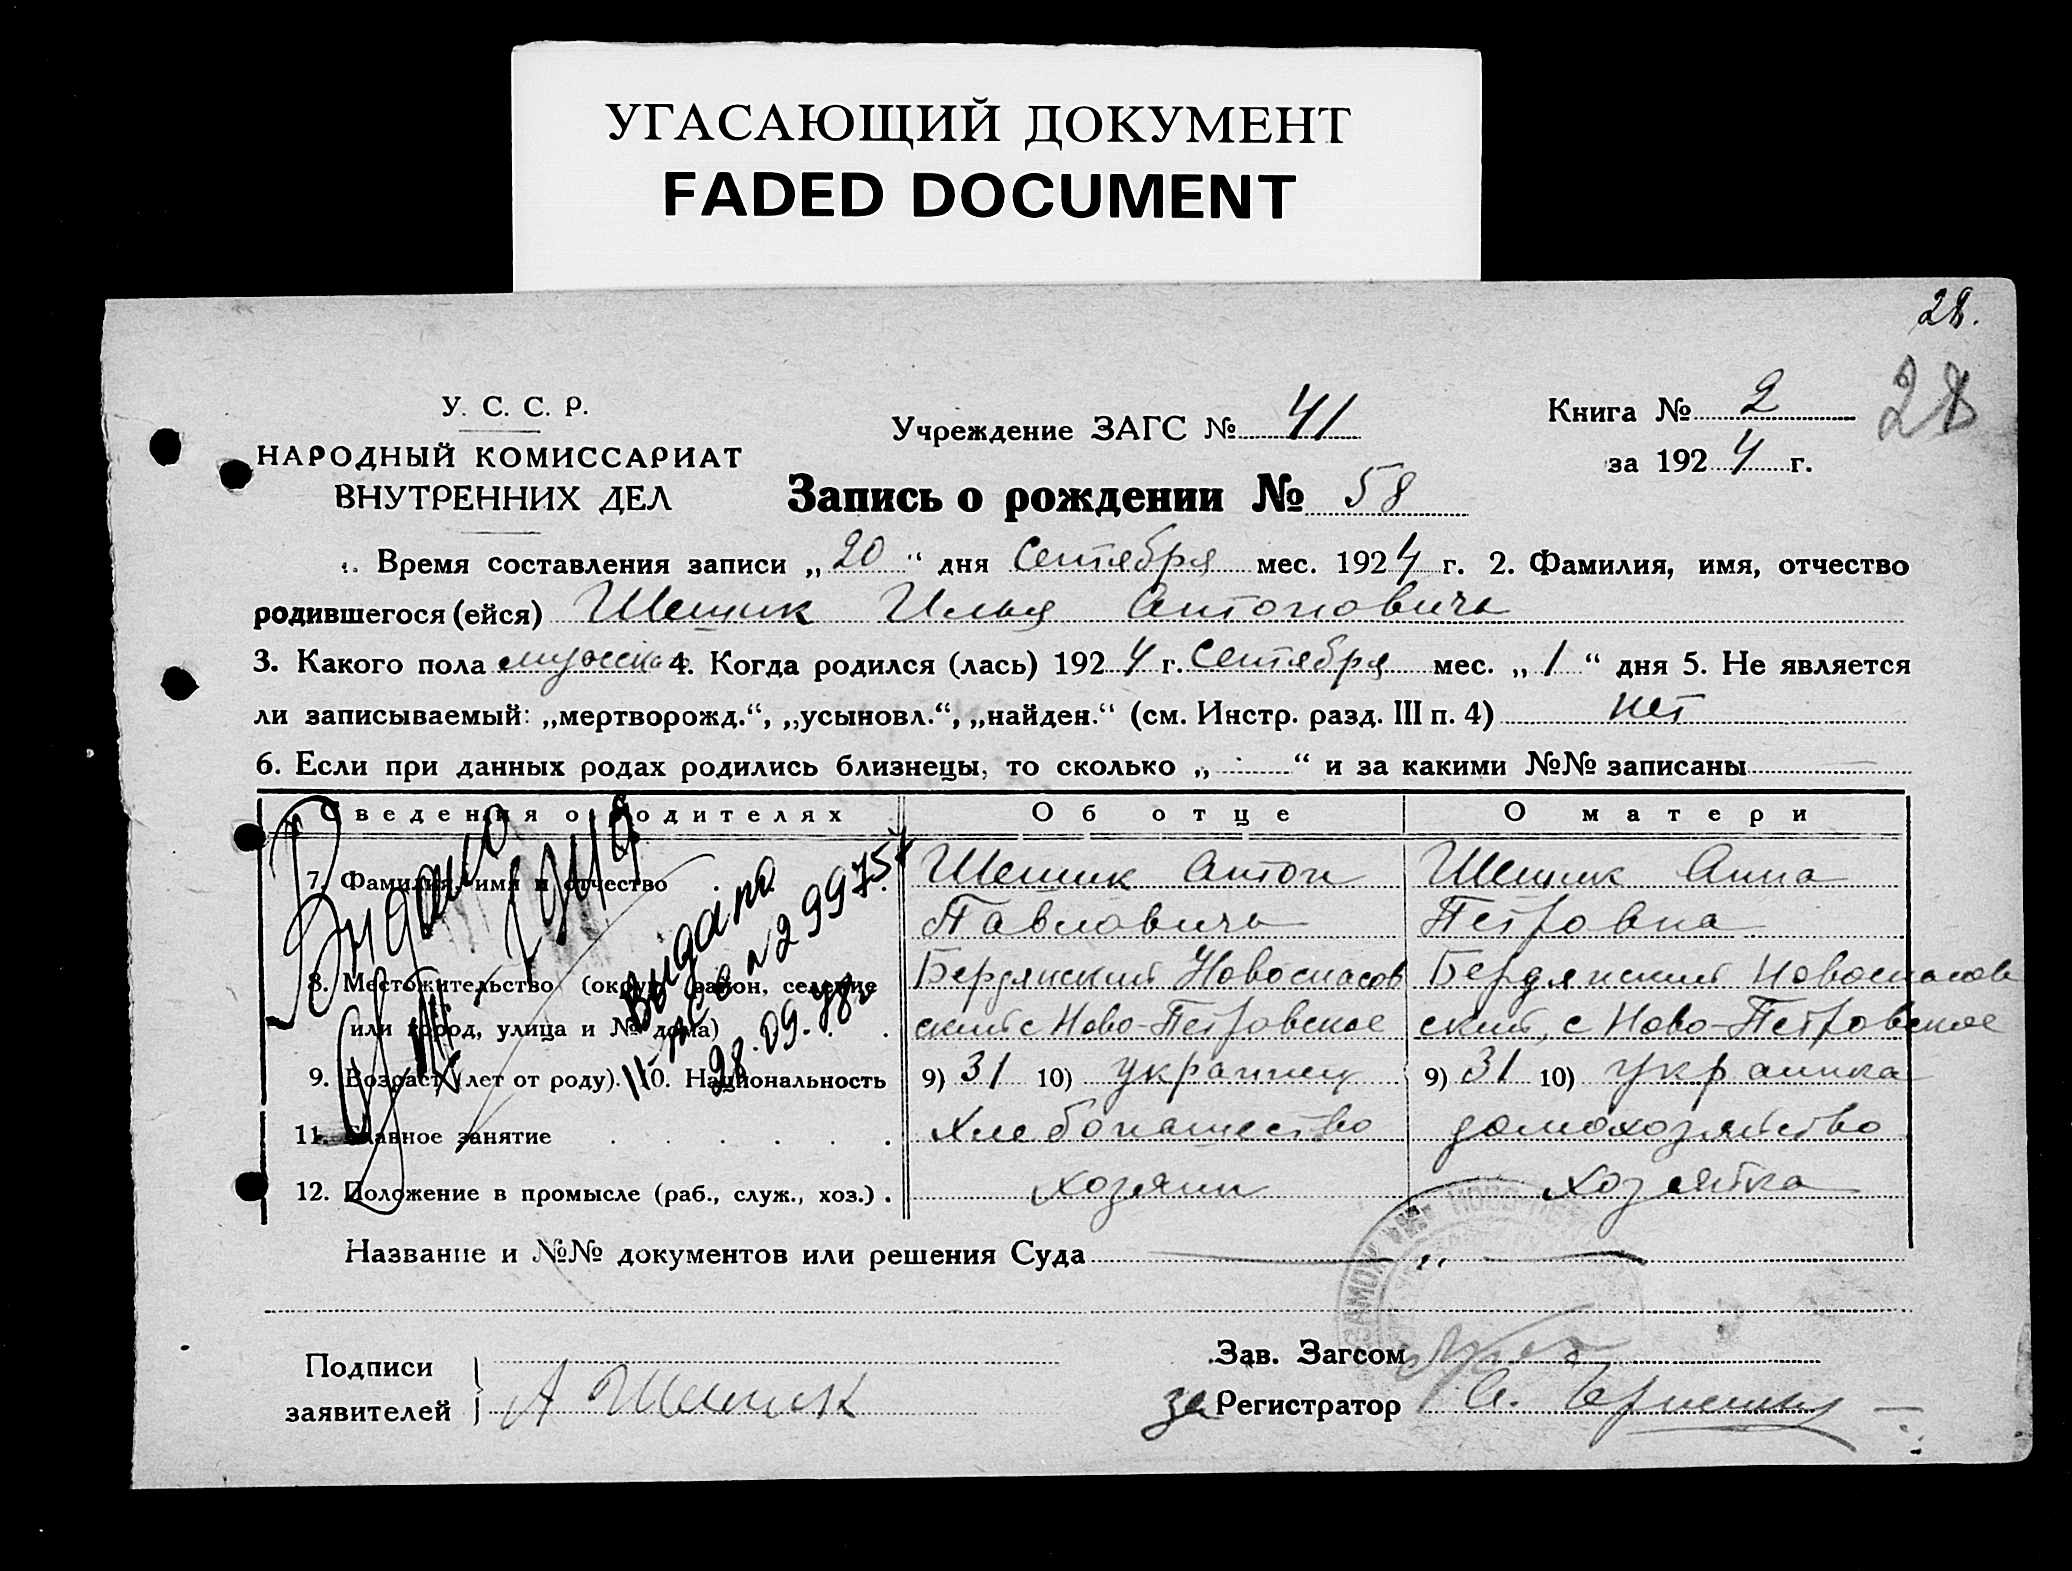 УГАСАЮЩИЙ ДОКУМЕНТ
FADED DOCUMENT
28.
28
У. С. С. Р.
НАРОДНЫЙ КОМИССАРИАТ
ВНУТРЕННИХ ДЕЛ
Учреждение ЗАГС № 41
Книга № 2
за 1924 г.
Запись о рождении № 58
Время составления записи „20“ дня Сентября мес. 1924 г. 2. Фамилия, имя, отчество
родившегося (ейся) Шешик Илья Антоновичъ
3. Какого пола мужско 4. Когда родился (лась) 1924 г. Сентября мес. „1“ дня 5. Не является
ли записываемый: „мертворожд.“, „усыновл.“, „найден.“ (см. Инстр. разд. III п. 4) нет
6. Если при данных родах родились близнецы, то сколько „ “ и за какими №№ записаны
Сведения о родителях Об отце О матери
7. Фамилия, имя и отчество Шешик Антон Шешик Анна
Павловичъ Петровна
8. Местожительство (округ, район, селение Бердянский Новоспасов Бердянский Новоспасов
или город, улица и № дома) ский с Ново-Петровское ский, с Ново-Петровское
9. Возраст (лет от роду). 10. Национальность 9) 31 10) украинец 9) 31 10) украинка
11. Главное занятие Хлебопашество домохозяйство
12. Положение в промысле (раб., служ., хоз.) хозяин хозяйка
Видано
Видано
II-ЖС № 299754
28.09.48г
Название и №№ документов или решения Суда „
Подписи
заявителей А Шешик
Зав. Загсом
за Регистратор